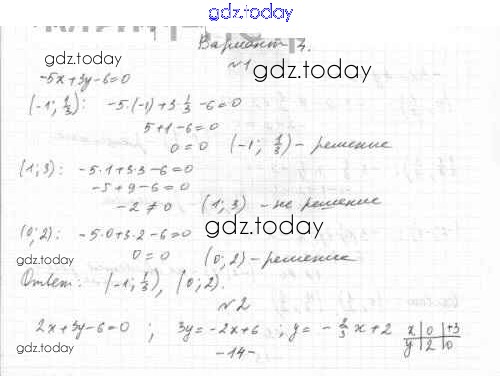 gdz.today
Вариант 3.
№1
-5x+3y-6=0
gdz.today
(-1; 1/3): -5·(-1)+3·1/3-6=0
gdz.today
5+1-6=0
0=0 (-1; 1/3) - решение
(1; 3): -5·1+3·3-6=0
-5+9-6=0
-2≠0 (1; 3) - не решение
gdz.today
(0; 2): -5·0+3·2-6=0
0=0 (0; 2) - решение
gdz.today
Ответ: (-1; 1/3), (0; 2).
№2
2x+3y-6=0 ; 3y=-2x+6 ; y= -2/3 x+2
x | 0 | +3
y | 2 | 0
gdz.today
-14-